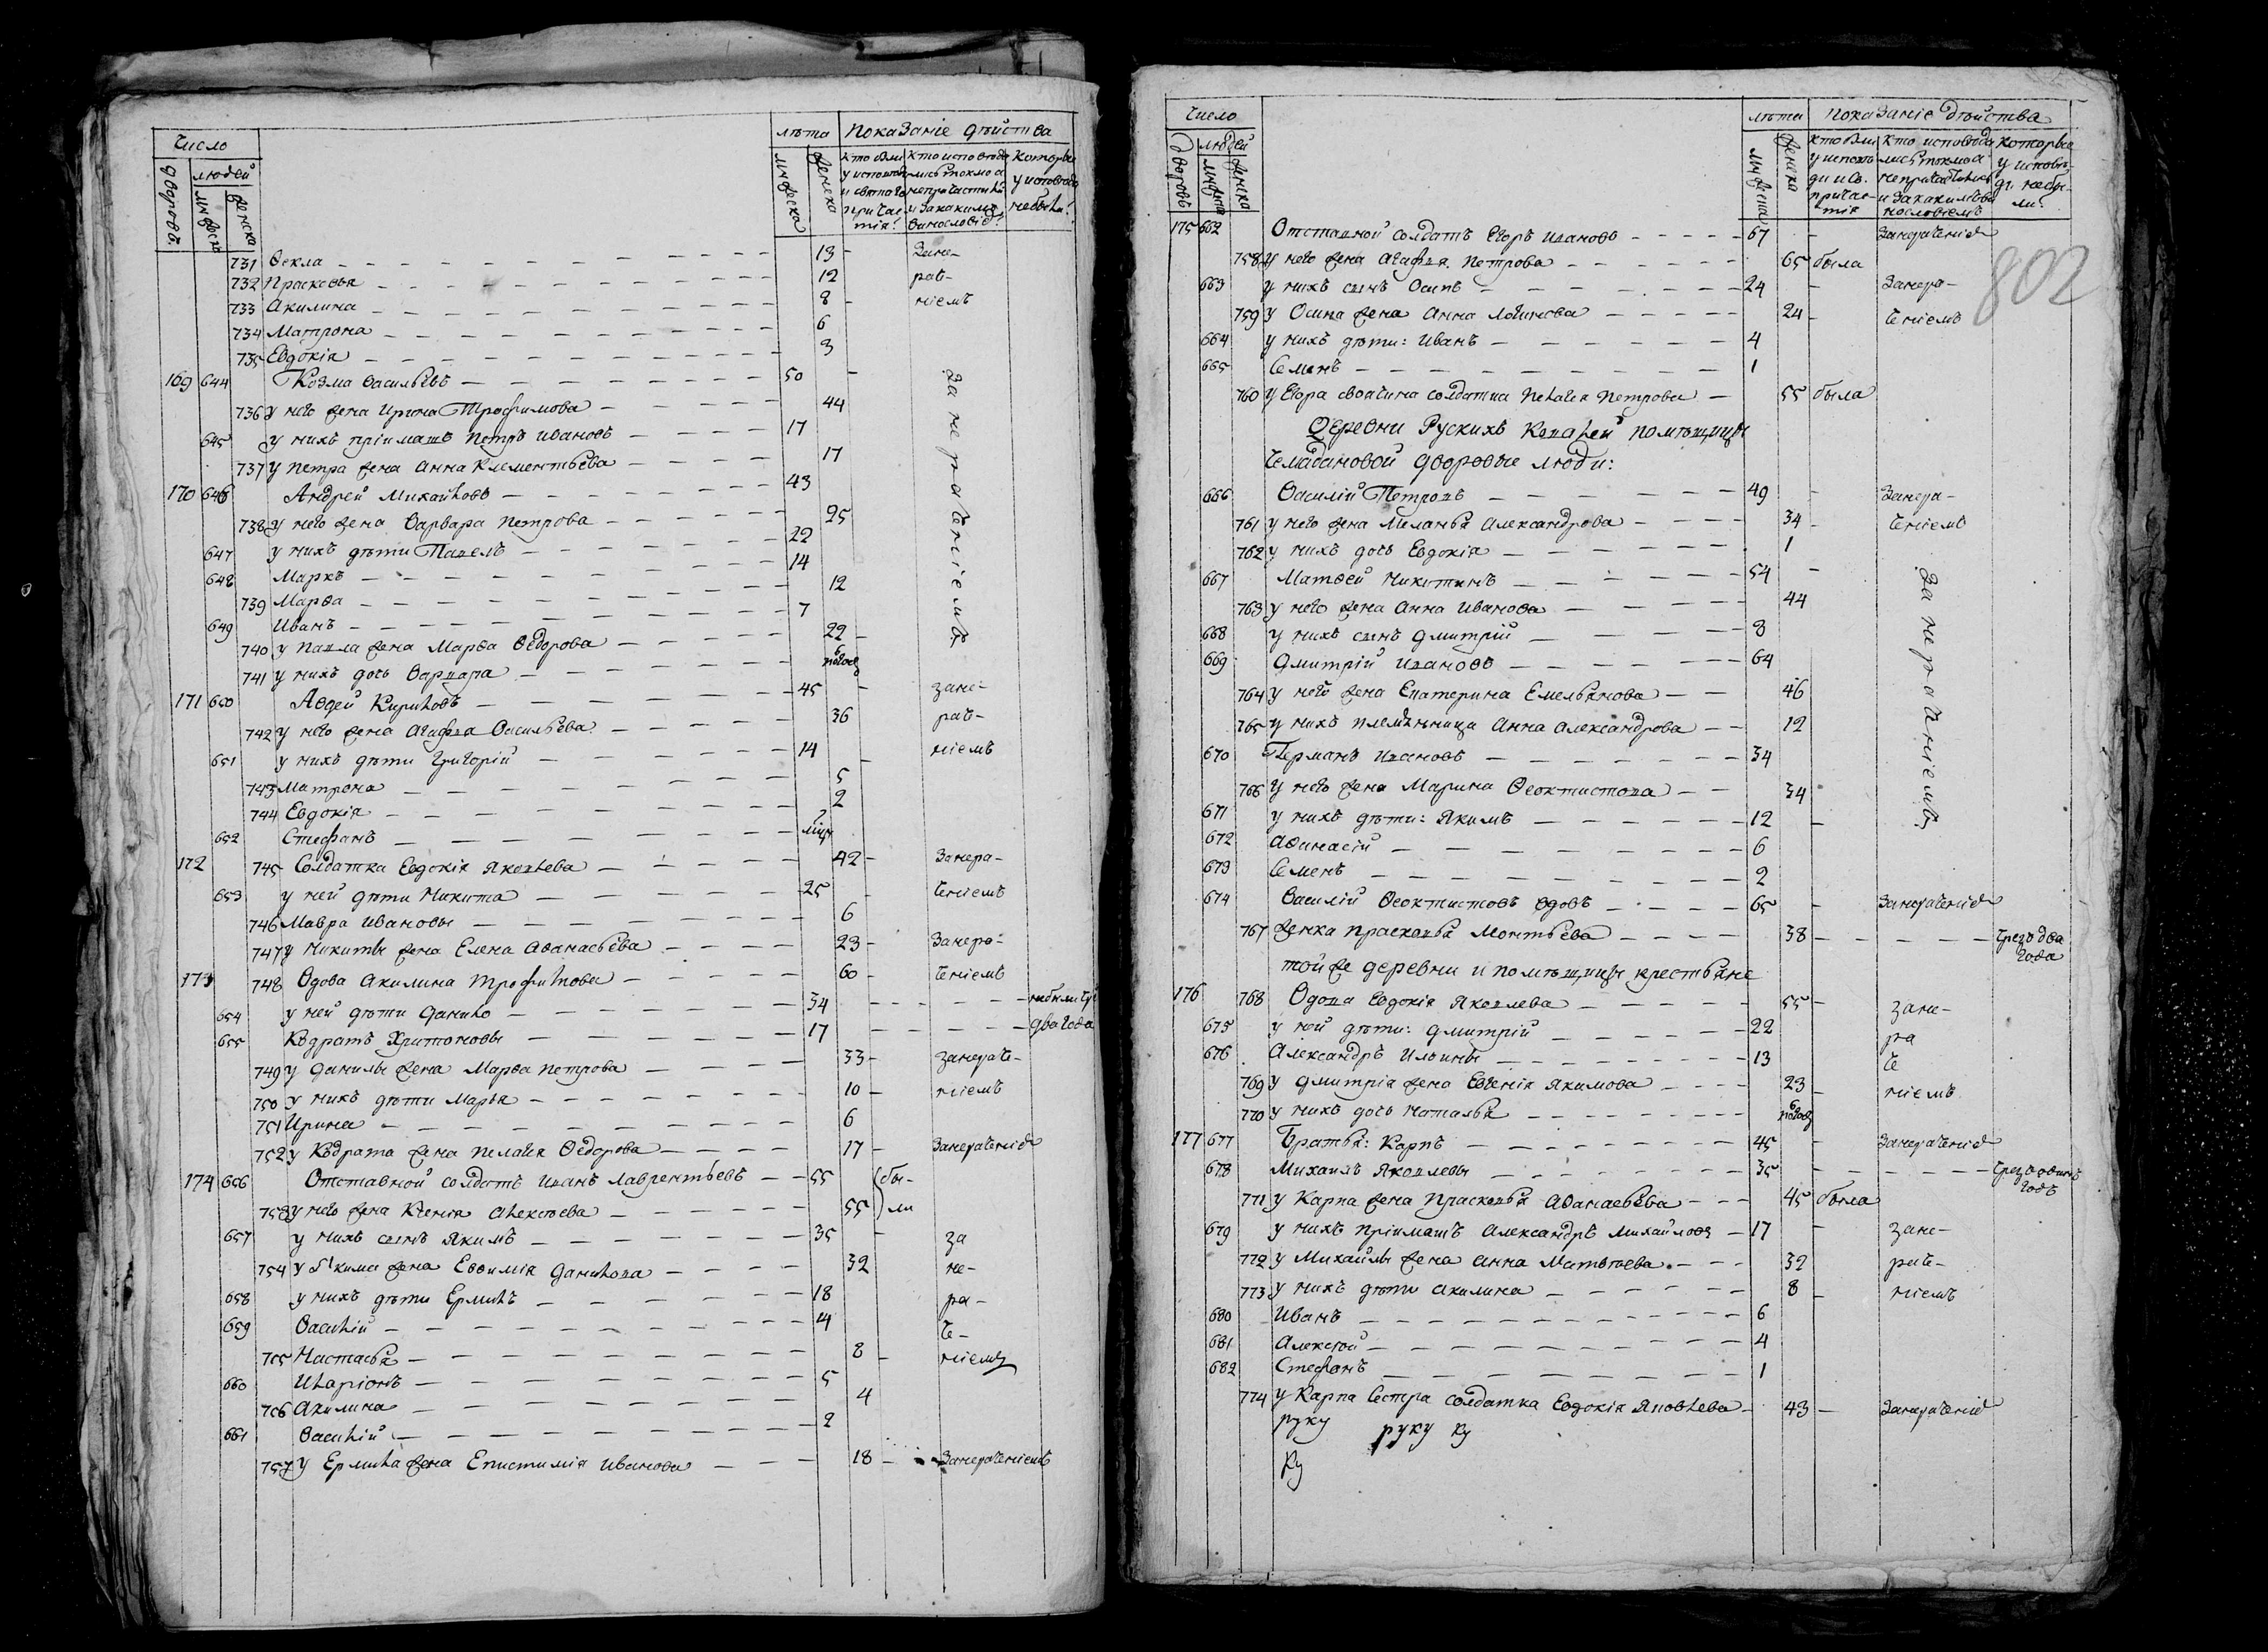 Число
лѣта Показаніе дѣйства
дворовъ людей мужеска женска
мужеска женска
731 Ѳекла 13 - Зане-
732 Прасковья 12 рач-
733 Акилина 8 - ніемъ
734 Матрона 6
735 Евдокія 3
169 644 Козма Васильевъ 50 -
736 у него жена Ирина Трофимова 44
645 у нихъ пріимашъ Петръ Ивановъ 17
737 у Петра жена Анна Клементьева 17
170 646 Андрей Михайловъ 43
738 у него жена Варвара Петрова 25
647 у нихъ дѣти Павелъ 22
648 Маркъ 14
739 Марѳа 12
649 Иванъ 7
740 у Павла жена Марѳа Ѳедорова 22 -
741 у нихъ дочь Варвара 6
занерачениемъ
171 650 Авдей Кириловъ 45 - зане-
742 у него жена Агафья Васильева 36 рач-
651 у нихъ дѣти Григорій 14 - ніемъ
743 Матрона 5
744 Евдокія 2
652 Стефанъ
172 745 Солдатка Евдокія Яковлева 42 - Занера-
653 у ней дѣти Никита 25 - ченіемъ
746 Мавра Ивановы 6
747 у Никиты жена Елена Аѳанасьева 23 - Занера-
173 748 Вдова Акилина Трофимова 60 - ченіемъ
654 у ней дѣти Данило 34
655 Кодратъ Харитоновы 17 два года
749 у Данилы жена Марѳа Петрова 33 - занерач-
750 у нихъ дѣти Марья 10 - ніемъ
751 Ирина 6
752 у Кодрата жена Пелагея Ѳедорова 17 - Занераченіе
174 656 Отставной солдатъ Иванъ Лаврентьевъ 55 бы-
753 у него жена Ксенія Алексѣева 55 ли
657 у нихъ сынъ Якимъ 35 - за
754 у Якима жена Евѳимія Данилова 32 не-
658 у нихъ дѣти Ермилъ 18 ра-
659 Василій 14 че-
755 Настасья 8 - ніемъ
660 Иларіонъ 5
756 Акилина 4
661 Василій 2
757 у Ермила жена Епистимія Иванова 18 - Занераченіемъ
Число
лѣта Показаніе дѣйства
дворовъ людей мужеска женска
802
175 662 Отставной солдатъ Егоръ Ивановъ 67 - Занераченіе
758 у него жена Агафья Петрова 65 была
663 у нихъ сынъ Осипъ 24 - Занера-
759 у Осипа жена Анна Логинова 24 - ченіемъ
664 у нихъ дѣти: Иванъ 4
665 Семенъ 1
760 у Егора своячина солдатка Пелагея Петрова 55 была
Деревни Рускихъ помѣщицы
Чемадановой дворовые люди:
666 Василій Петровъ 49 - Занера-
761 у него жена Меланья Александрова 34 - ченіемъ
762 у нихъ дочь Евдокія 1
667 Матѳей Никитинъ 54 -
763 у него жена Анна Иванова 44
668 у нихъ сынъ Дмитрій 8
669 Дмитрій Ивановъ 64
764 у него жена Екатерина Емельянова 46
765 у нихъ племянница Анна Александрова 12
670 Германъ Ивановъ 34
766 У него жена Марина Ѳеоктистова 34
671 у нихъ дѣти: Якимъ 12 -
672 Аѳанасій 6
673 Семенъ 2
занераченіемъ
674 Василій Ѳеоктистовъ вдовъ 65 - Занераченіе
767 женка Прасковья Монтьева 38 - чрезъ два
года
той же деревни и помѣщицы крестьяне
176 768 Вдова Евдокія Яковлева 55 - зане-
675 у ней дѣти: Дмитрій 22 ра
676 Александръ Ильины 13 че
769 у Дмитрія жена Евгенія Якимова 23 - ніемъ
770 у нихъ дочь Наталья 6
177 677 Братья: Карпъ 45 - Занераченіе
678 Михаилъ Яковлевы 35 - чрезъ одинъ
годъ
771 у Карпа жена Прасковья Аѳанасьева 45 была
679 у нихъ пріимашъ Александръ Михайловъ 17 - зане-
772 у Михайлы жена Анна Матвѣева 32 рач-
773 у нихъ дѣти Акилина 8 - ніемъ
680 Иванъ 6
681 Алексѣй 4
682 Стефанъ 1
774 у Карпа сестра солдатка Евдокія Яковлева 43 - Занераченіе
руку руку ку
ку